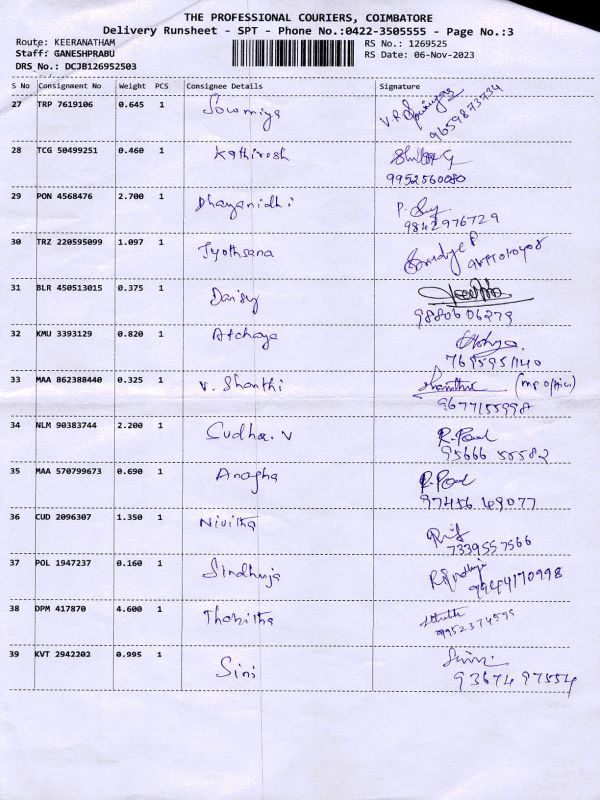 THE PROFESSIONAL COURIERS, COIMBATORE
Delivery Runsheet - SPT - Phone No.:0422-3505555 - Page No.:3
Route: KEERANATHAM
RS No.: 1269525
Staff: GANESHPRABU
RS Date: 06-Nov-2023
DRS No.: DCJB126952503
S No Consignment No Weight PCS Consignee Details Signature
27 TRP 7619106 0.645 1 Sowmiya
9659873734
28 TCG 50499251 0.460 1 Kathiresh
9952560080
29 PON 4568476 2.700 1 Dhayanidhi
9842976729
30 TRZ 220595099 1.097 1 Jyothsana
31 BLR 450513015 0.375 1 Daisy
9880606279
32 KMU 3393129 0.820 1 Atchaya
33 MAA 862388440 0.325 1 V. Shanthi
9677155998
34 NLM 90383744 2.200 1 Sudha. V R. Paul
95666 55582
35 MAA 570799673 0.690 1 Anagha R. Paul
97456 49077
36 CUD 2096307 1.350 1 Nivitha
7339557566
37 POL 1947237 0.160 1 Sindhuja
99444170998
38 DPM 417870 4.600 1
9952374599
39 KVT 2942202 0.995 1 Sini
93674 97554